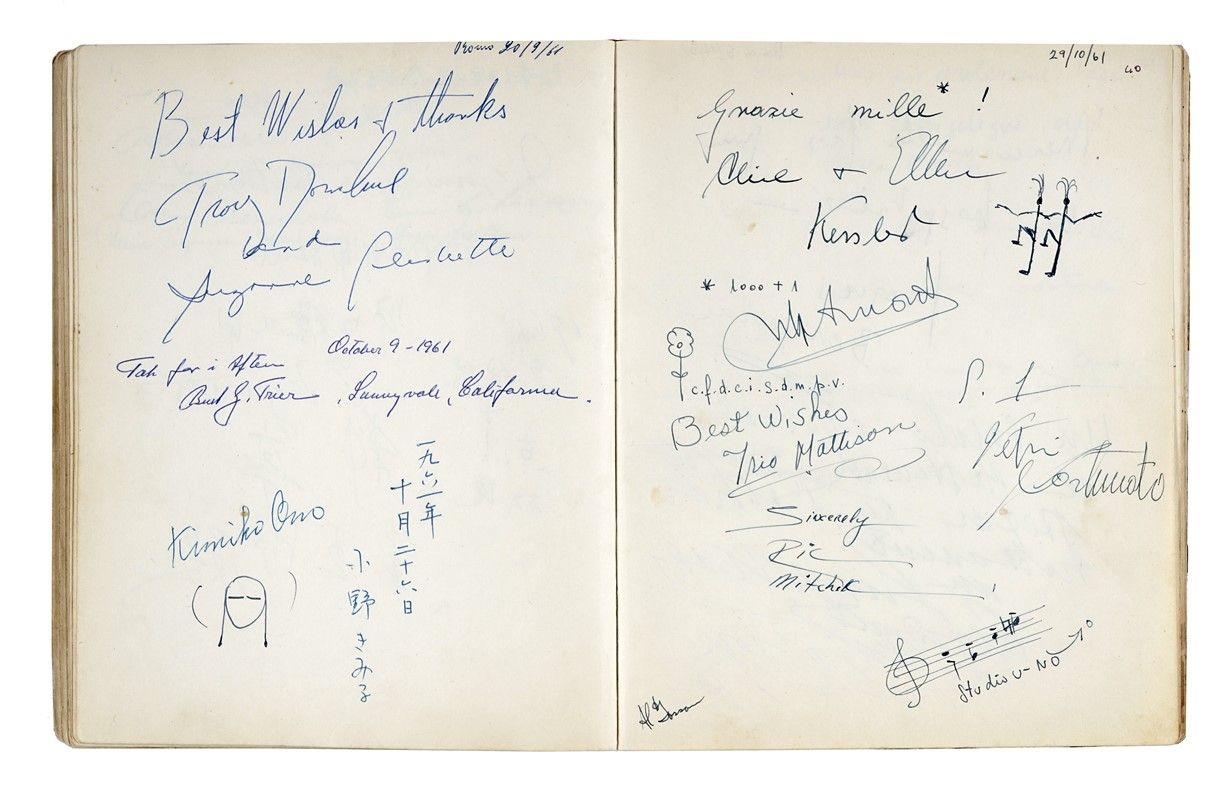 Roma 20/9/61
Best Wishes & thanks
Troy Donahue
and
Suzanne Pleshette
October 9 - 1961
Tak for i Aften
Trier, Sunnyvale, California.
一九六一年
十月二十六日
小野きみ子
Kimiko Ono
29/10/61
40
Grazie mille* !
Alice + Ellen
Kessler
* 1000 + 1
c.f.d.c.i.s.d.m.p.v.
Best Wishes
Trio Mattison
Fortunato
Sincerely
Ric
Studio U-NO